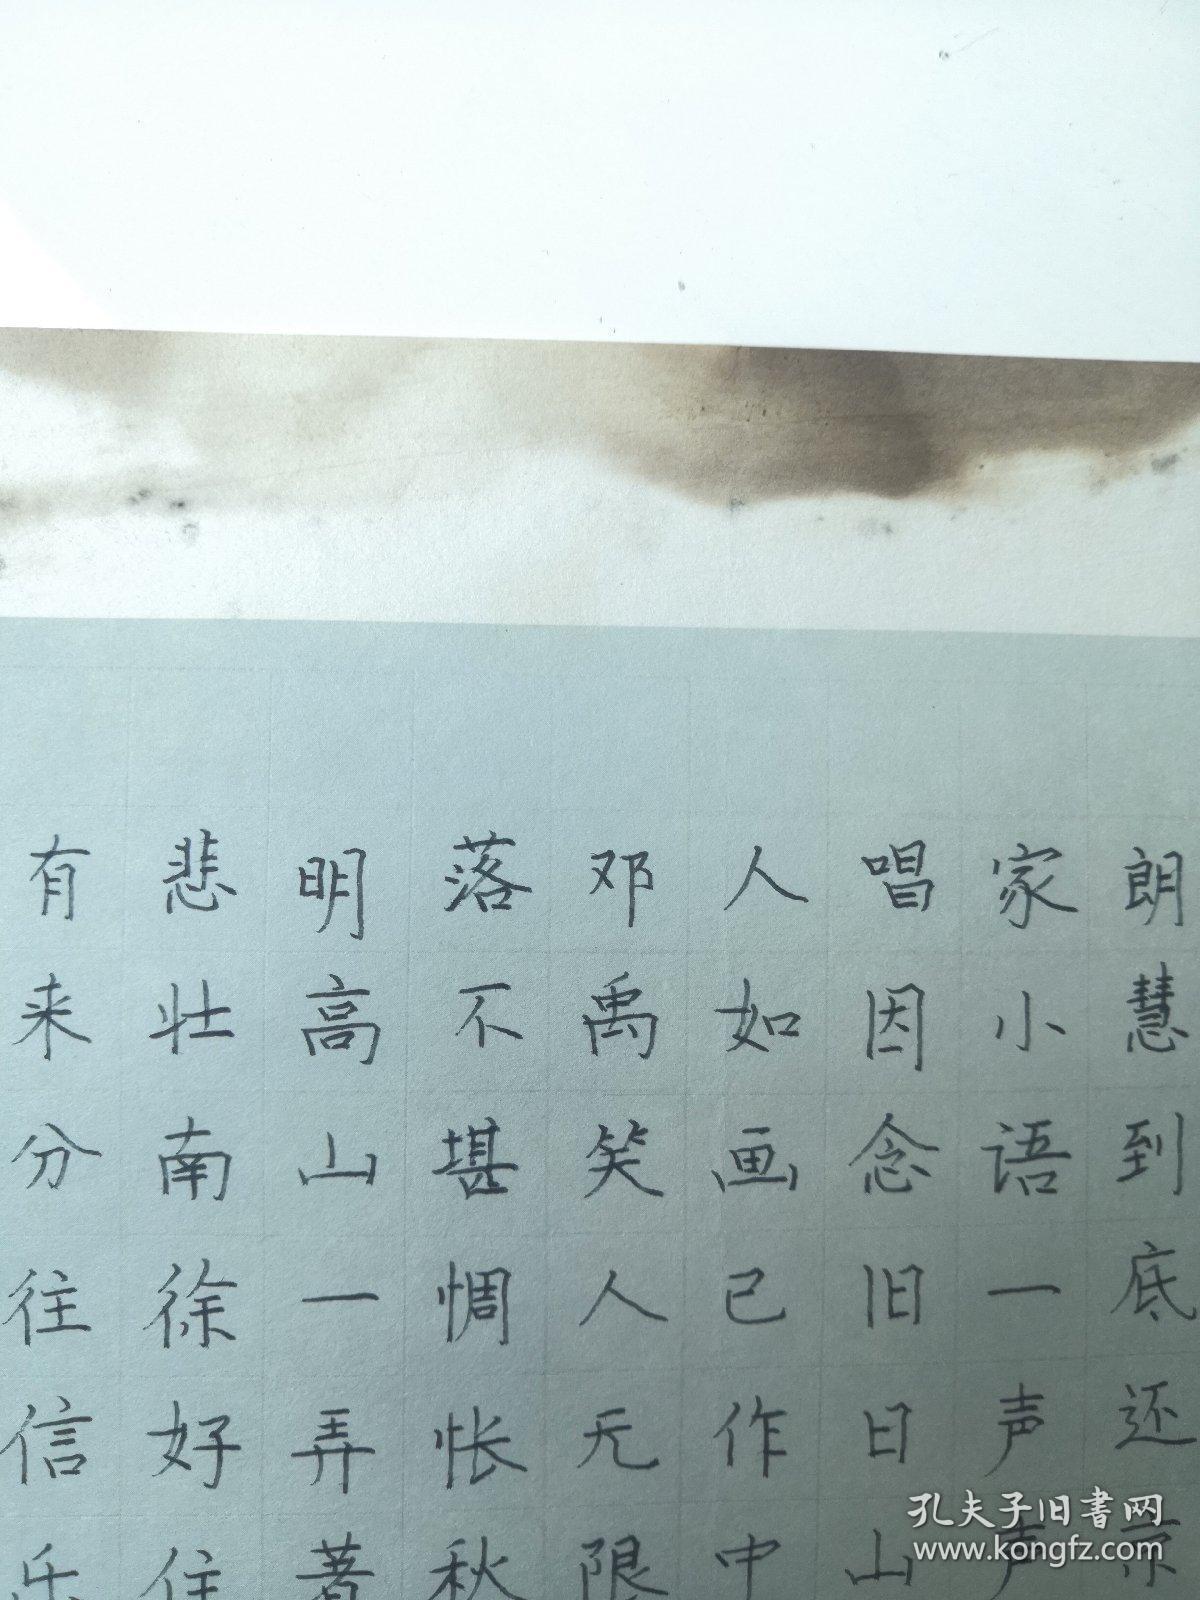 朗慧到底还京
家小语一声声
唱因念旧日山
人如画已作中
邓禹笑人无限
落不堪惆怅秋
明高山一弄著
悲壮南徐好住
有来分往信乐
孔夫子旧书网
www.kongfz.com